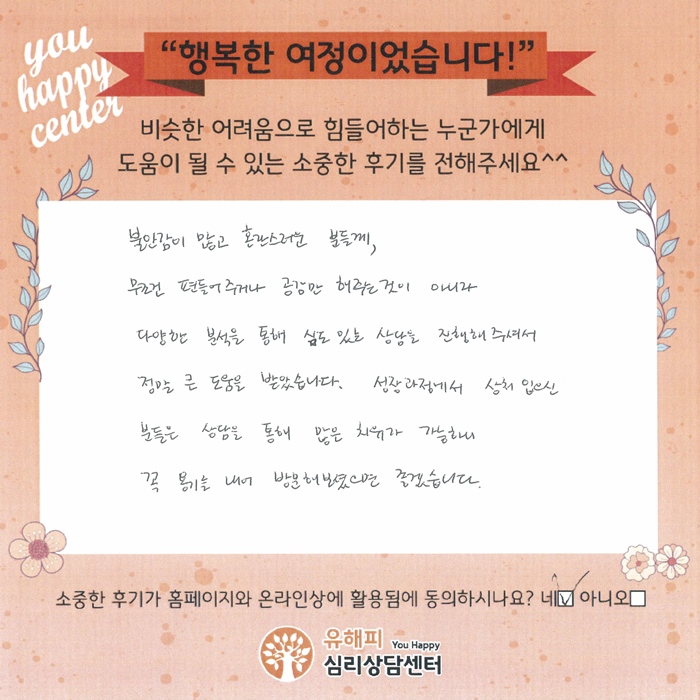 you
happy
center
“행복한 여정이었습니다!”
비슷한 어려움으로 힘들어하는 누군가에게
도움이 될 수 있는 소중한 후기를 전해주세요^^
불안감이 많고 혼란스러운 분들께,
무조건 편들어주거나 공감만 해주는것이 아니라
다양한 분석을 통해 심도있는 상담을 진행해주셔서
정말 큰 도움을 받았습니다. 성장과정에서 상처 입으신
분들은 상담을 통해 많은 치유가 가능하니
꼭 용기를 내어 방문해보셨으면 좋겠습니다.
소중한 후기가 홈페이지와 온라인상에 활용됨에 동의하시나요? 네☑ 아니오☐
유해피 You Happy
심리상담센터